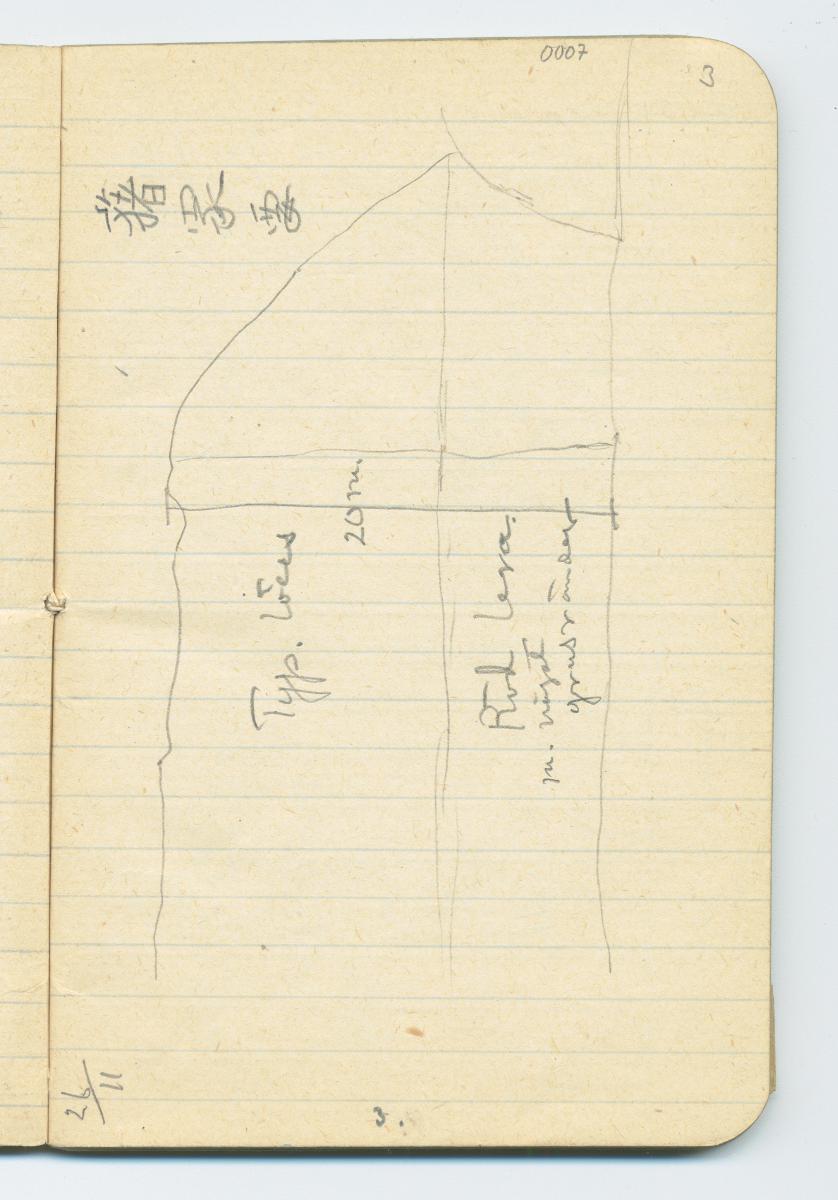 0007
3
26/11
豬家
Typ. Löess
20 m.
Röd lera.
m. något
grusränder
3.